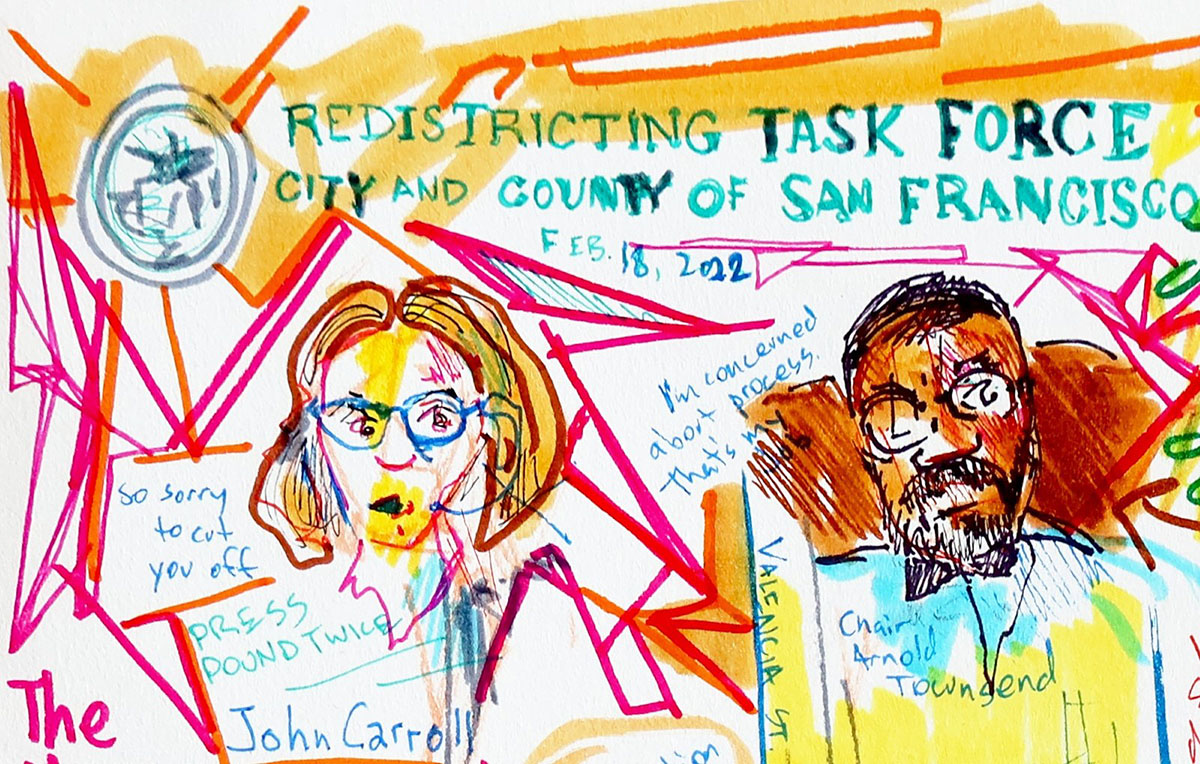 REDISTRICTING TASK FORCE
CITY AND COUNTY OF SAN FRANCISCO
FEB. 18, 2022
I'm concerned
about process.
that's my
So sorry
to cut
you off
PRESS
POUND TWICE
John Carroll
VALENCIA ST.
Chair
Arnold
Townsend
The